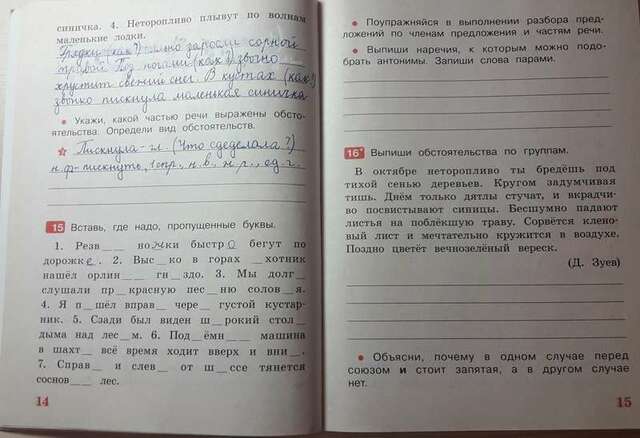 синичка. 4. Неторопливо плывут по волнам
маленькие лодки.
Грядки (как?) сильно заросли сорной
травой. Под ногами (как?) звучно
хрустит свежий снег. В кустах (как?)
звонко пискнула маленькая синичка
• Укажи, какой частью речи выражены обсто-
ятельства. Определи вид обстоятельств.
Пискнула-гл. (Что сделала?)
н.ф-пискнуть, I спр., н.в., ед.ч.
15 Вставь, где надо, пропущенные буквы.
1. Резв__ ножки быстро бегут по
дорожке. 2. Выс_ко в горах _хотник
нашёл орлин__ гн_здо. 3. Мы долг_
слушали пр_красную пес_ню солов_я.
4. Я п_шёл вправ_ чере_ густой кустар-
ник. 5. Сзади был виден ш_рокий стол_
дыма над лес_м. 6. Под_ёмн__ машина
в шахт_ всё время ходит вверх и вни_.
7. Справ_ и слев_ от ш_ссе тянется
соснов__ лес.
14
• Поупражняйся в выполнении разбора пред-
ложений по членам предложения и частям речи.
• Выпиши наречия, к которым можно подо-
брать антонимы. Запиши слова парами.
16* Выпиши обстоятельства по группам.
В октябре неторопливо ты бредёшь под
тихой сенью деревьев. Кругом задумчивая
тишь. Днём только дятлы стучат, и вкрадчи-
во посвистывают синицы. Бесшумно падают
листья на поблёкшую траву. Сорвётся клено-
вый лист и мечтательно кружится в воздухе.
Поздно цветёт вечнозелёный вереск.
(Д. Зуев)
• Объясни, почему в одном случае перед
союзом и стоит запятая, а в другом случае
нет.
15